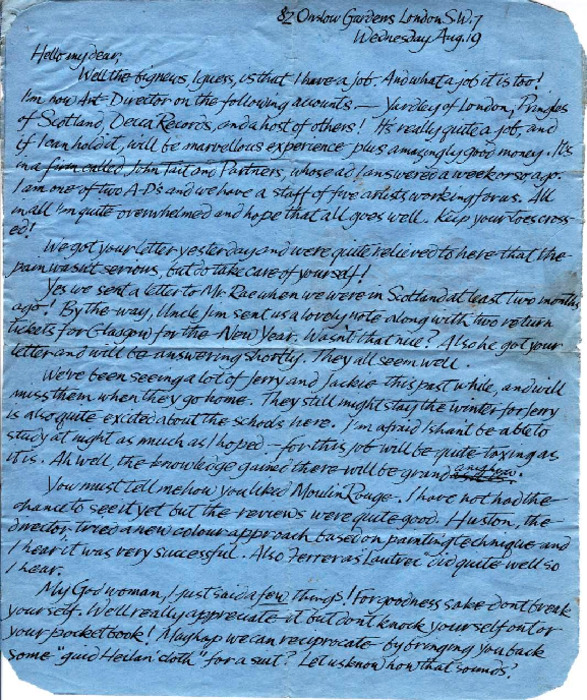 82 Onslow Gardens London S.W.7
Wednesday Aug. 19
Hello my dear,
Well the big news, I guess, is that I have a job. And what a job it is too!
I'm now Art-Director on the following accounts — Yardley of London, Pringles
of Scotland, Decca Records, and a host of others! It's really quite a job, and
if I can hold it, will be marvellous experience plus amazingly good money. It's
in a firm called John Tait and Partners, whose ad I answered a week or so ago.
I am one of two A-D's and we have a staff of five artists working for us. All
in all I'm quite overwhelmed and hope that all goes well. Keep your toes cross-
ed!
We got your letter yesterday and were quite relieved to here that the
pain wasn't serious, but do take care of yourself!
Yes we sent a letter to Mr. Rae when we were in Scotland at least two months
ago! By the way, Uncle Jim sent us a lovely note along with two return
tickets for Glasgow for the New Year. Wasn't that nice? Also he got your
letter and will be answering shortly. They all seem well.
We've been seeing a lot of Jerry and Jackie this past while, and will
miss them when they go home. They still might stay the winter for Jerry
is also quite excited about the schools here. I'm afraid I shan't be able to
study at night as much as I hoped — for this job will be quite taxing as
it is. Ah well, the knowledge gained there will be grand anyhow.
You must tell me how you liked Moulin Rouge. I have not had the
chance to see it yet but the reviews were quite good. Huston, the
director, tried a new colour approach based on painting technique and
I hear it was very successful. Also Ferrer as "Lautrec" did quite well so
I hear.
My God woman, I just said a few things! For goodness sake don't break
yourself. We'll really appreciate it but don't knock yourself out or
your pocket book! Mayhap we can reciprocate by bringing you back
some "guid Heilan' cloth" for a suit? Let us know how that sounds?